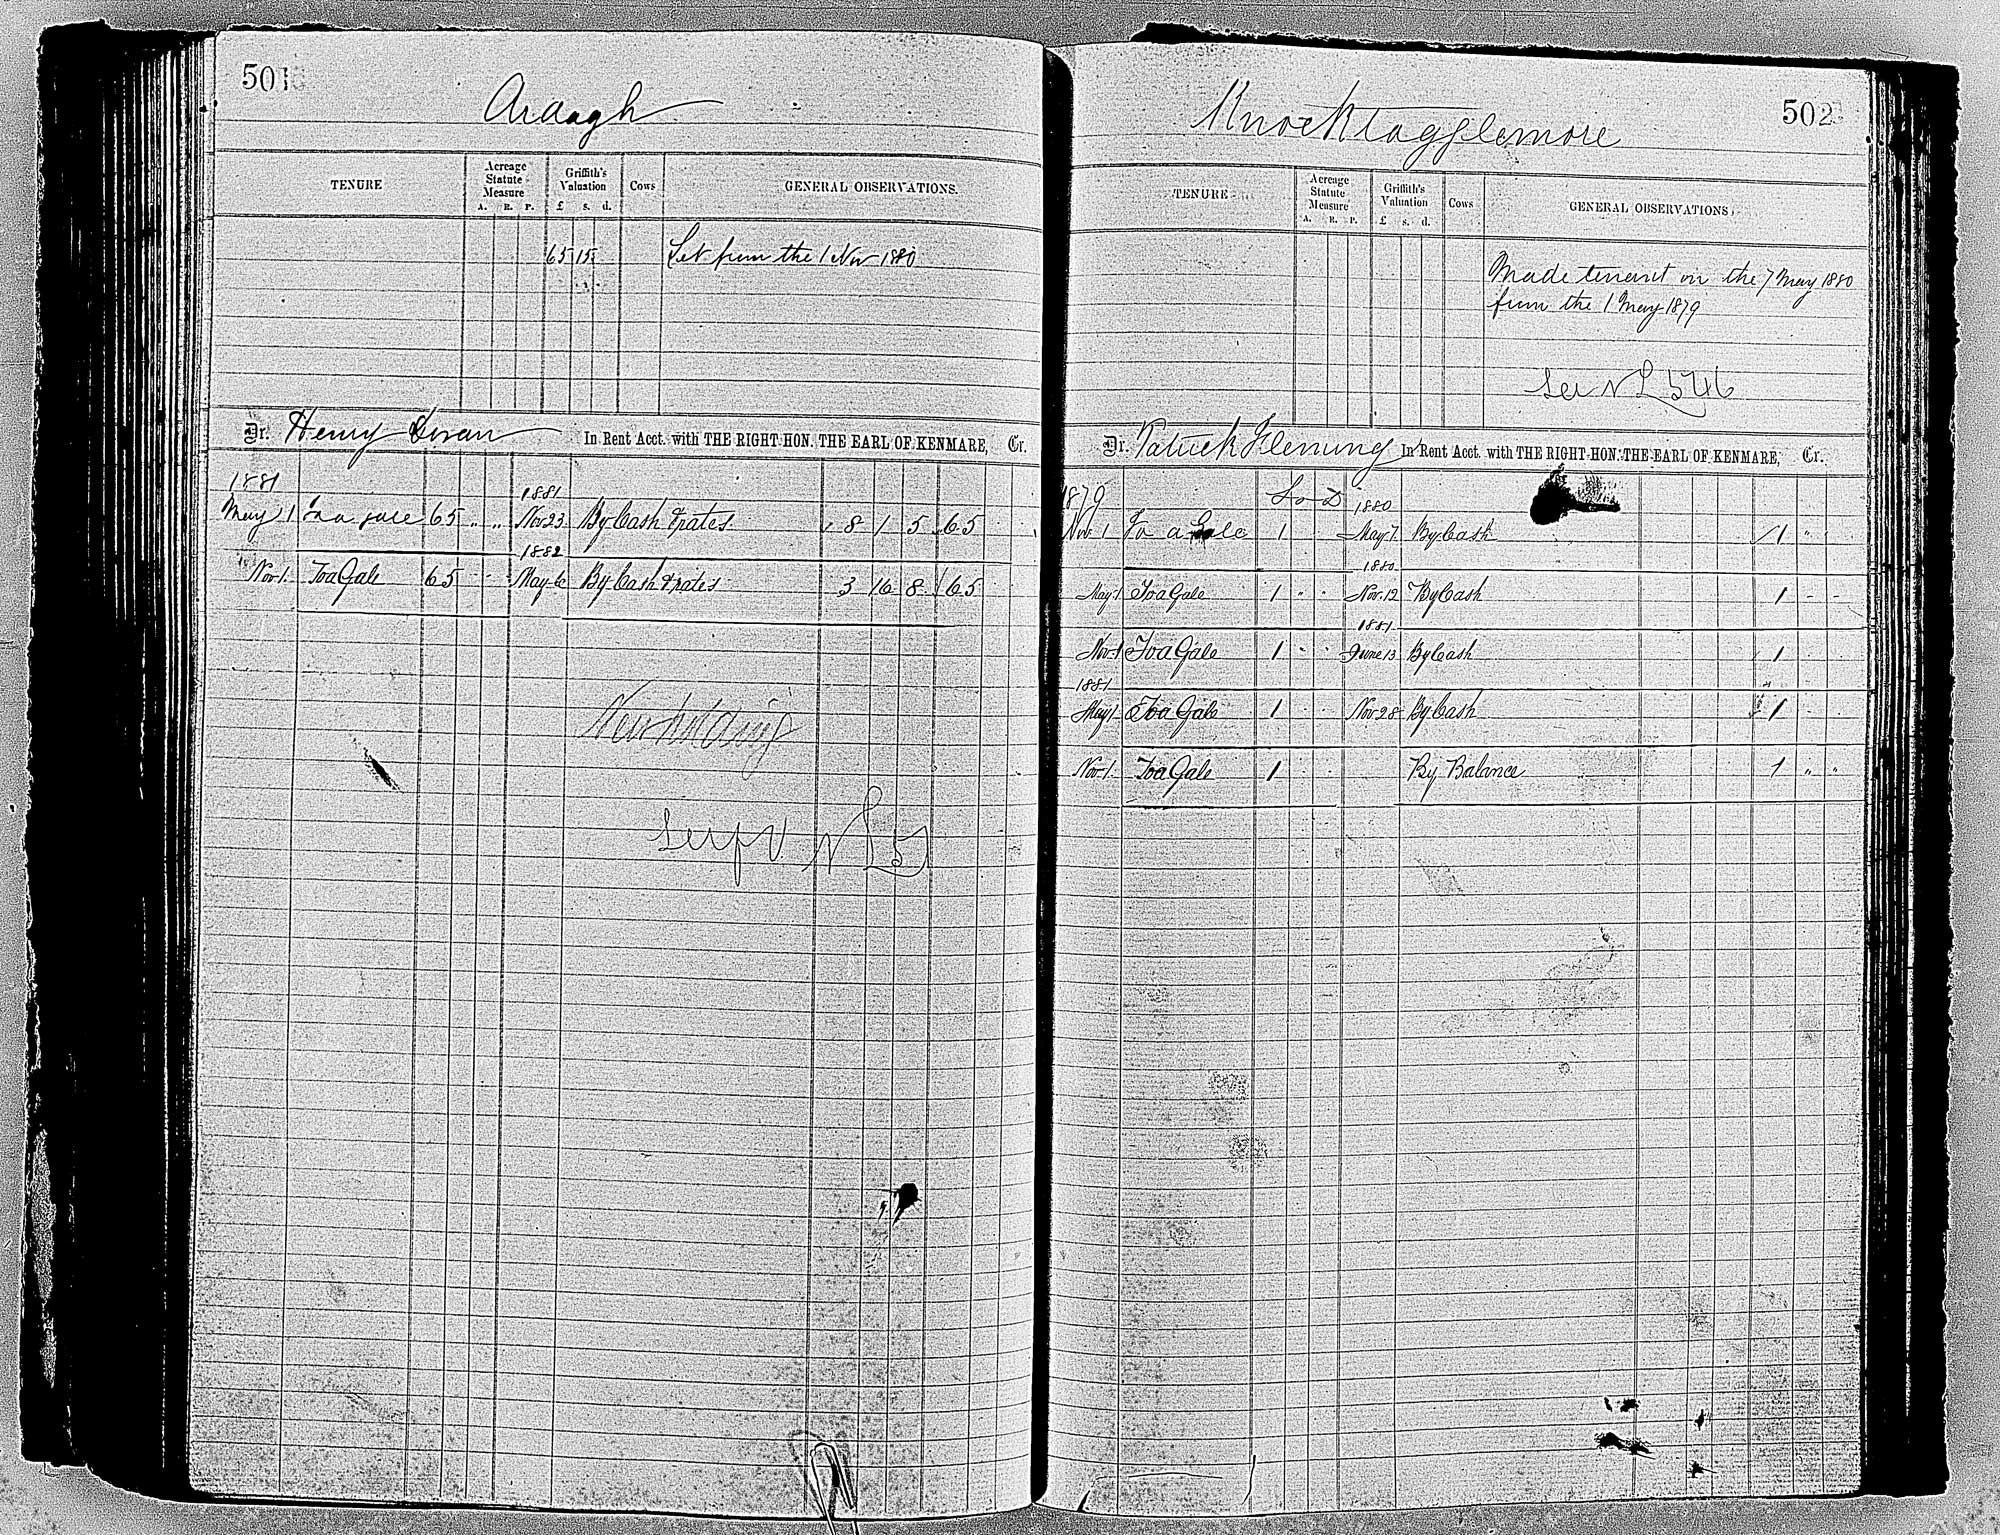 501
Ardagh
TENURE
Acreage Statute Measure
A. R. P.
Griffith's Valuation
£ s. d.
Cows
GENERAL OBSERVATIONS.
65 15
Let from the 1 Nov 1880
Dr. Henry In Rent Acct. with THE RIGHT HON. THE EARL OF KENMARE, Cr.
1881 1881
May 1 To a gale 65 " " Nov 23 By Cash & rates 8 1 5 65
1882
Nov 1. To a Gale 65 - - May 6 By Cash & rates 3 16 8 65
See N L 5
502
Knocktagglemore
TENURE
Acreage Statute Measure
A. R. P.
Griffith's Valuation
£ s. d.
Cows
GENERAL OBSERVATIONS
Made tenant on the 7 May 1880
from the 1 May 1879
See N L 546
Dr. Patrick Fleming In Rent Acct. with THE RIGHT HON. THE EARL OF KENMARE, Cr.
1879 £ s D 1880
Nov 1 To a Gale 1 May 7 By Cash 1 "
1880
May 1 To a Gale 1 " " Nov. 12 By Cash 1 - -
1881
Nov 1 To a Gale 1 - - June 13 By Cash 1
1881
May 1 To a Gale 1 - Nov 28 By Cash 1 -
Nov 1. To a Gale 1 - - By Balance 1 " "